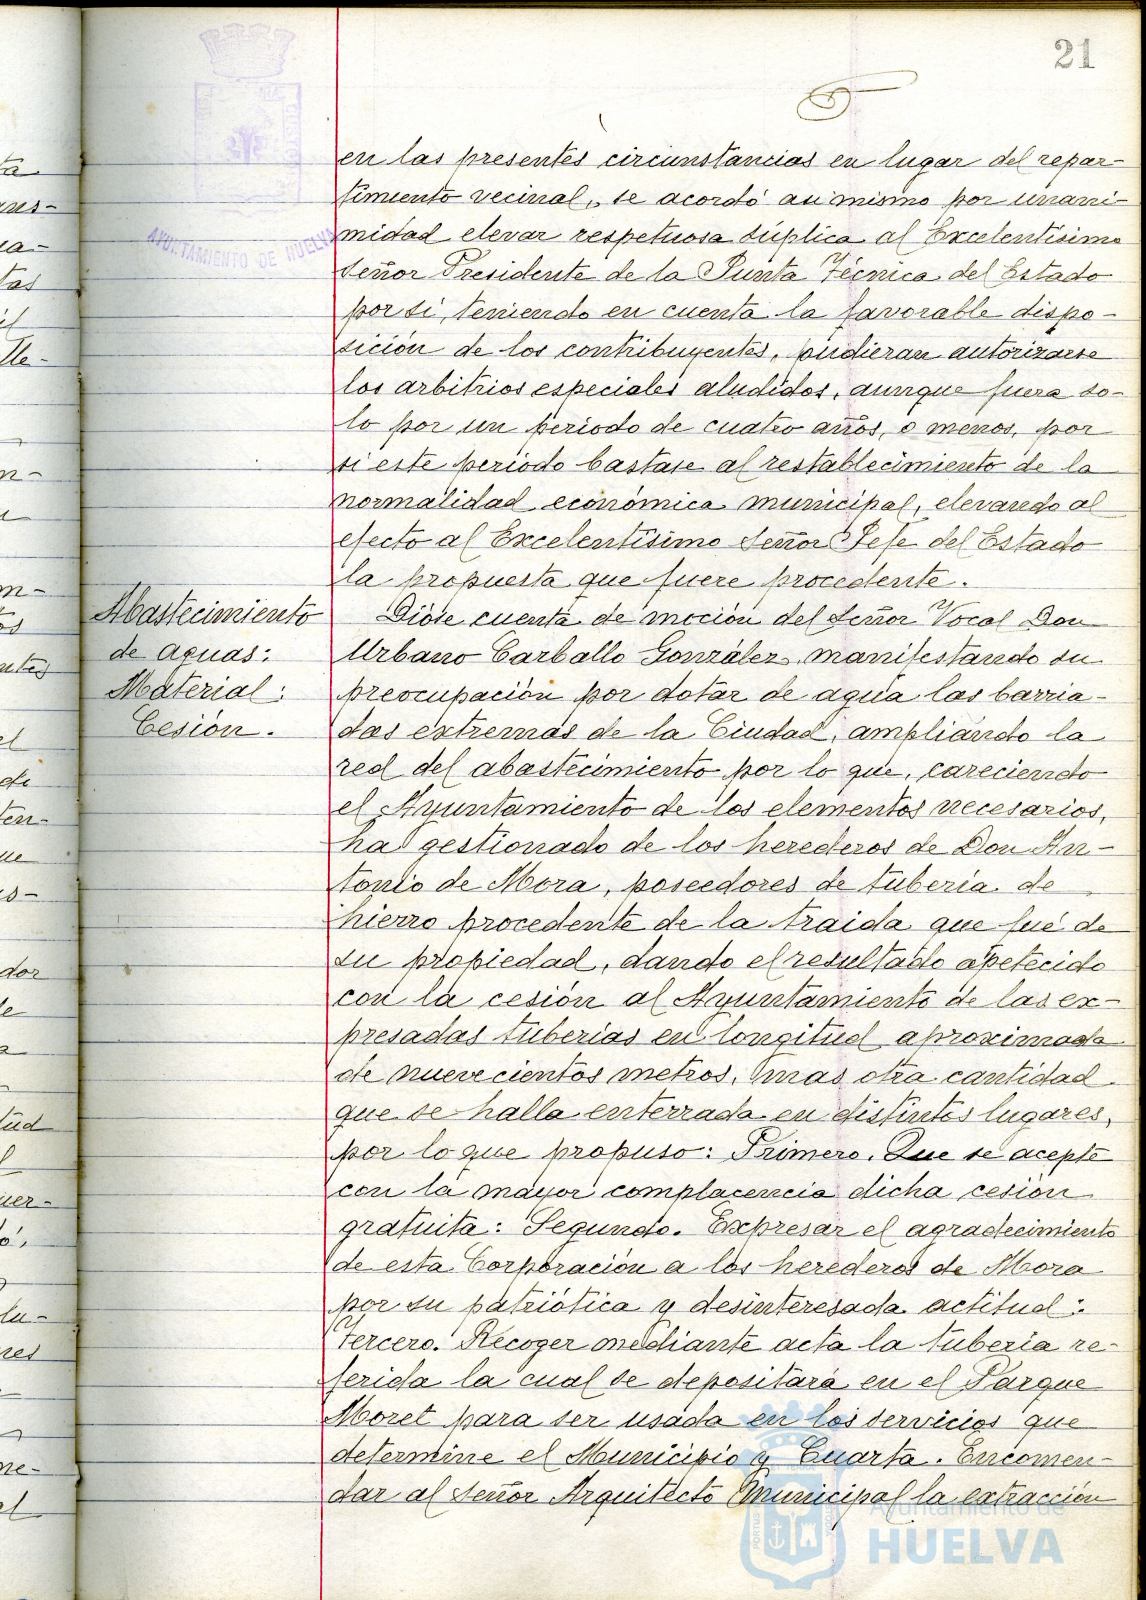 21
en las presentes circunstancias en lugar del repar-
timiento vecinal, se acordó asi mismo por unani-
midad elevar respetuosa súplica al Excelentísimo
Señor Presidente de la Junta Técnica del Estado
por si, teniendo en cuenta la favorable dispo-
sición de los contribuyentes, pudieran autorizarse
los arbitrios especiales aludidos, aunque fuera so-
lo por un periodo de cuatro años, o menos, por
si este periodo bastase al restablecimiento de la
normalidad económica municipal, elevando al
efecto al Excelentísimo Señor Jefe del Estado
la propuesta que fuere procedente.
Abastecimiento
de aguas:
Material:
Cesión.
Dióse cuenta de moción del Señor Vocal Don
Urbano Carballo González, manifestando su
preocupación por dotar de agua las barria-
das extremas de la Ciudad, ampliando la
red del abastecimiento por lo que, careciendo
el Ayuntamiento de los elementos necesarios,
ha gestionado de los herederos de Don An-
tonio de Mora, poseedores de tubería de
hierro procedente de la traida que fué de
su propiedad, dando el resultado apetecido
con la cesión al Ayuntamiento de las ex-
presadas tuberías en longitud aproximada
de nuevecientos metros, mas otra cantidad
que se halla enterrada en distintos lugares,
por lo que propuso: Primero. Que se acepte
con la mayor complacencia dicha cesión
gratuita: Segundo. Expresar el agradecimiento
de esta Corporación a los herederos de Mora
por su patriótica y desinteresada actitud:
Tercero. Recoger mediante acta la tubería re-
ferida la cual se depositará en el Parque
Moret para ser usada en los servicios que
determine el Municipio y Cuarta. Encomen-
dar al Señor Arquitecto Municipal la extracción
AYUNTAMIENTO DE HUELVA
Ayuntamiento de
HUELVA